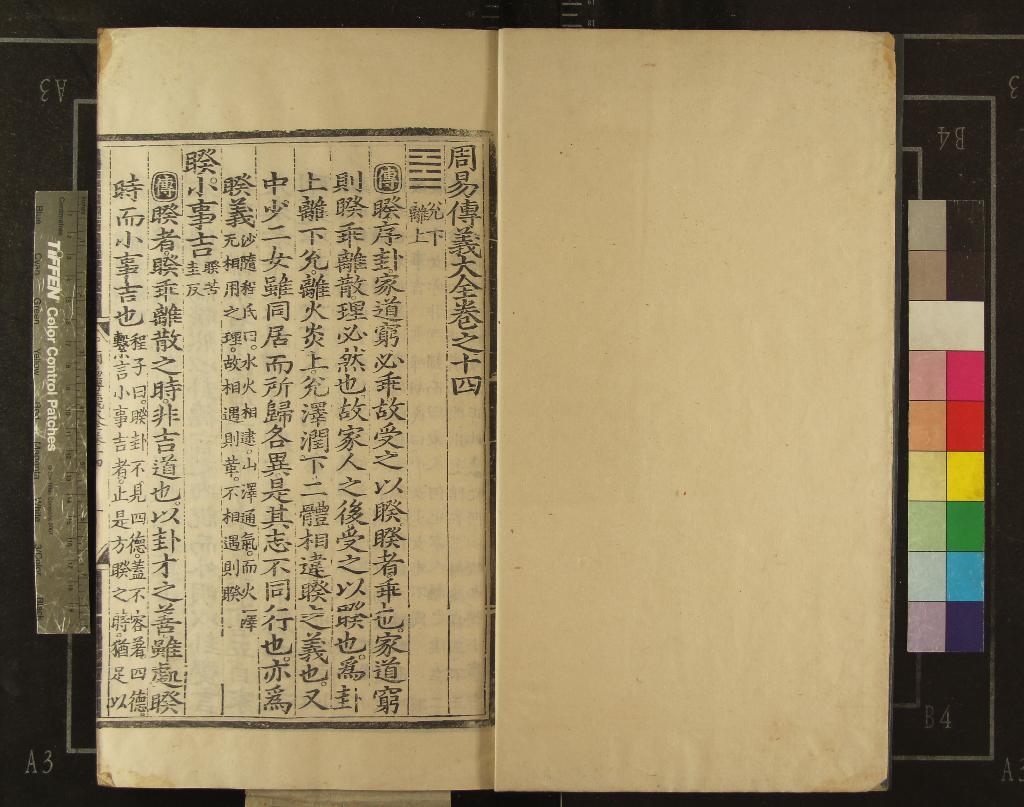 周易傳義大全卷之十四
兌下
離上
傳睽序卦家道窮必乖故受之以睽睽者乖也家道窮
則睽乖離散理必然也故家人之後受之以睽也爲卦
上離下兌離火炎上兌澤潤下二體相違睽之義也又
中少二女雖同居而所歸各異是其志不同行也亦爲
睽義
沙隨程氏曰水火相逮山澤通氣而火澤
无相用之理故相遇則革不相遇則睽
睽小事吉
睽苦
圭反
傳睽者睽乖離散之時非吉道也以卦才之善雖處睽
時而小事吉也
程子曰睽卦不見四德蓋不容着四德
繫言小事吉者止是方睽之時猶足以
TIFFEN Color Control Patches
A3
A3
B4
B4
A3